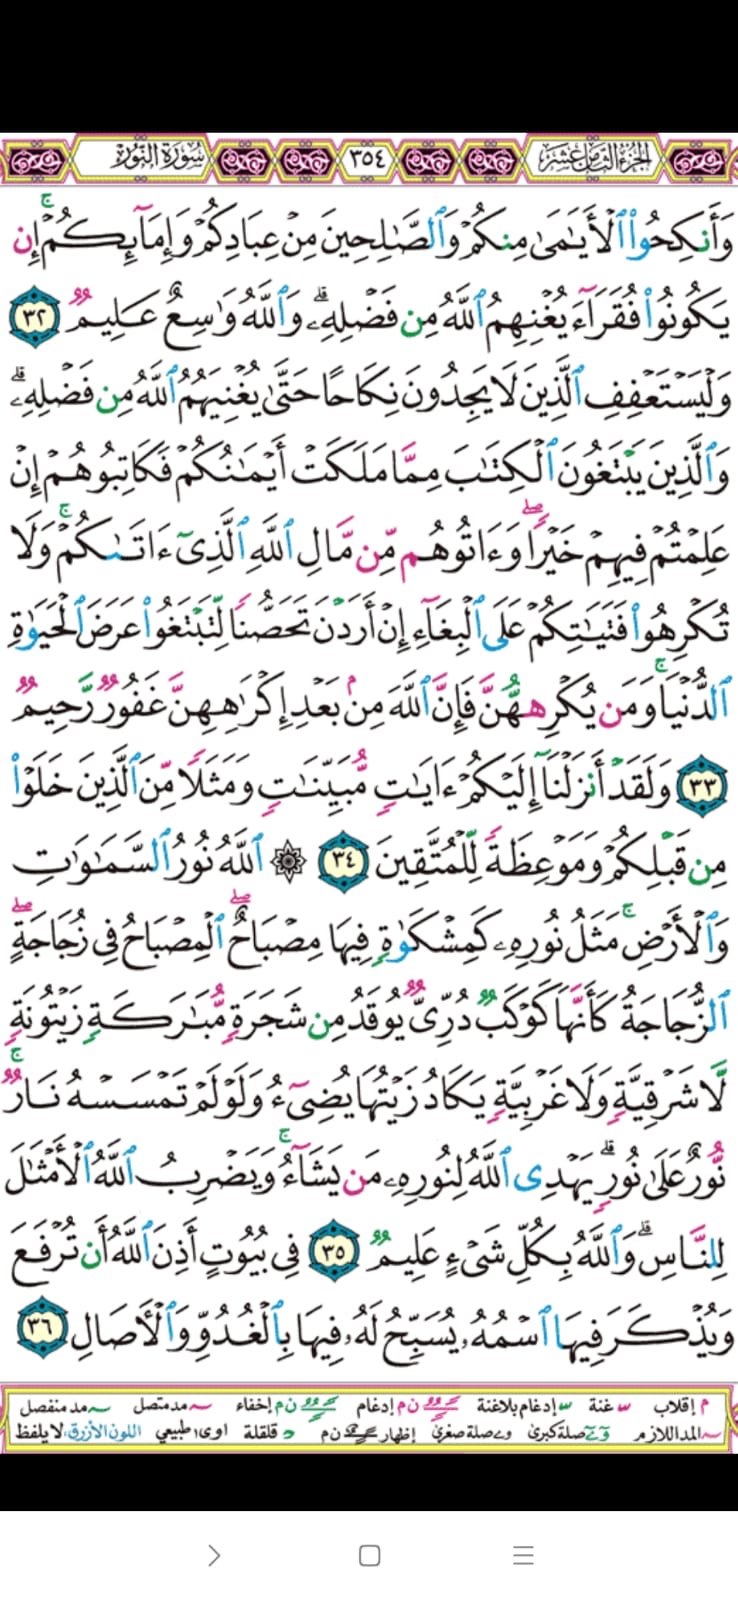 الجزء الثامن عشر ٣٥٤ سورة النور
وَأَنكِحُوا۟ ٱلْأَيَـٰمَىٰ مِنكُمْ وَٱلصَّـٰلِحِينَ مِنْ عِبَادِكُمْ وَإِمَآئِكُمْ ۚ إِن
يَكُونُوا۟ فُقَرَآءَ يُغْنِهِمُ ٱللَّهُ مِن فَضْلِهِۦ ۗ وَٱللَّهُ وَٰسِعٌ عَلِيمٌ ٣٢
وَلْيَسْتَعْفِفِ ٱلَّذِينَ لَا يَجِدُونَ نِكَاحًا حَتَّىٰ يُغْنِيَهُمُ ٱللَّهُ مِن فَضْلِهِۦ ۗ
وَٱلَّذِينَ يَبْتَغُونَ ٱلْكِتَـٰبَ مِمَّا مَلَكَتْ أَيْمَـٰنُكُمْ فَكَاتِبُوهُمْ إِنْ
عَلِمْتُمْ فِيهِمْ خَيْرًا ۖ وَءَاتُوهُم مِّن مَّالِ ٱللَّهِ ٱلَّذِىٓ ءَاتَىٰكُمْ ۚ وَلَا
تُكْرِهُوا۟ فَتَيَـٰتِكُمْ عَلَى ٱلْبِغَآءِ إِنْ أَرَدْنَ تَحَصُّنًا لِّتَبْتَغُوا۟ عَرَضَ ٱلْحَيَوٰةِ
ٱلدُّنْيَا ۚ وَمَن يُكْرِههُّنَّ فَإِنَّ ٱللَّهَ مِنۢ بَعْدِ إِكْرَٰهِهِنَّ غَفُورٌ رَّحِيمٌ
٣٣ وَلَقَدْ أَنزَلْنَآ إِلَيْكُمْ ءَايَـٰتٍ مُّبَيِّنَـٰتٍ وَمَثَلًا مِّنَ ٱلَّذِينَ خَلَوْا۟
مِن قَبْلِكُمْ وَمَوْعِظَةً لِّلْمُتَّقِينَ ٣٤ ۞ ٱللَّهُ نُورُ ٱلسَّمَـٰوَٰتِ
وَٱلْأَرْضِ ۚ مَثَلُ نُورِهِۦ كَمِشْكَوٰةٍ فِيهَا مِصْبَاحٌ ۖ ٱلْمِصْبَاحُ فِى زُجَاجَةٍ ۖ
ٱلزُّجَاجَةُ كَأَنَّهَا كَوْكَبٌ دُرِّىٌّ يُوقَدُ مِن شَجَرَةٍ مُّبَـٰرَكَةٍ زَيْتُونَةٍ
لَّا شَرْقِيَّةٍ وَلَا غَرْبِيَّةٍ يَكَادُ زَيْتُهَا يُضِىٓءُ وَلَوْ لَمْ تَمْسَسْهُ نَارٌ ۚ
نُّورٌ عَلَىٰ نُورٍ ۗ يَهْدِى ٱللَّهُ لِنُورِهِۦ مَن يَشَآءُ ۚ وَيَضْرِبُ ٱللَّهُ ٱلْأَمْثَـٰلَ
لِلنَّاسِ ۗ وَٱللَّهُ بِكُلِّ شَىْءٍ عَلِيمٌ ٣٥ فِى بُيُوتٍ أَذِنَ ٱللَّهُ أَن تُرْفَعَ
وَيُذْكَرَ فِيهَا ٱسْمُهُۥ يُسَبِّحُ لَهُۥ فِيهَا بِٱلْغُدُوِّ وَٱلْـَٔاصَالِ ٣٦
م إقلاب غنة إدغام بلاغنة ن م إدغام ن م إخفاء مد متصل مد منفصل
المد اللازم صلة كبرى صلة صغرى إظهار ن م قلقلة اوى طبيعي اللون الأزرق لا يلفظ